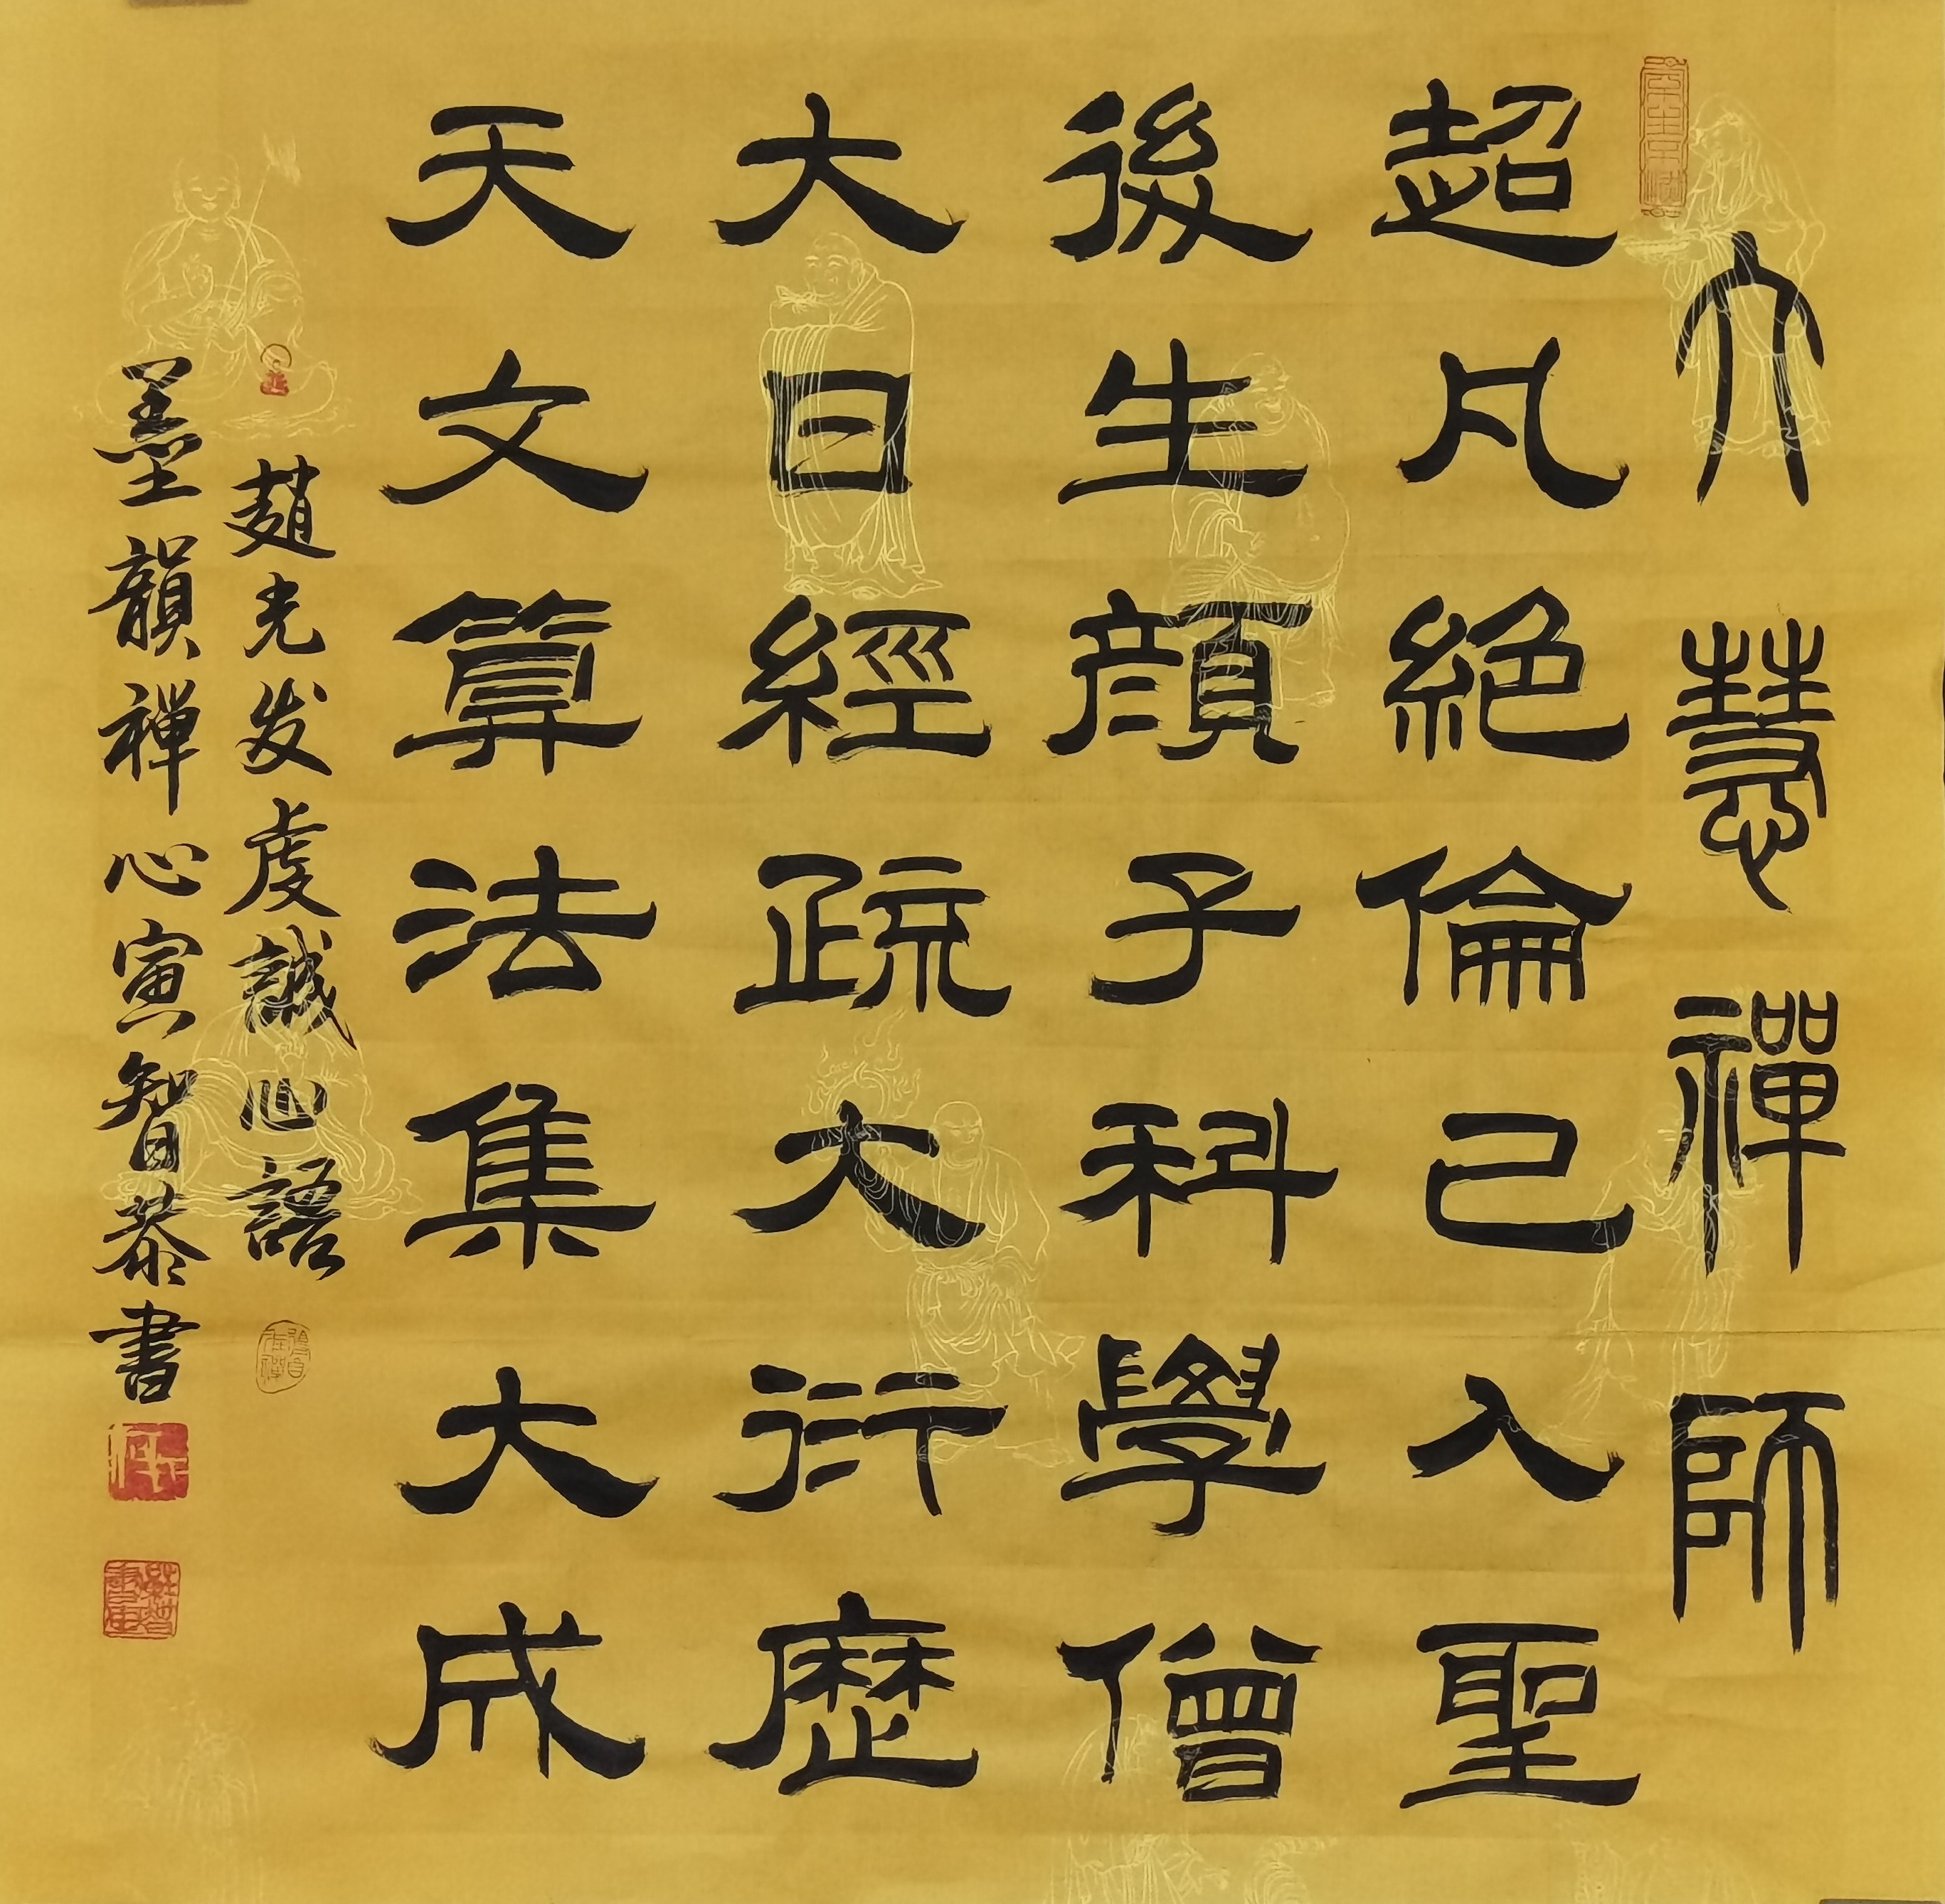 大慧禪師
超凡絕倫已入聖
後生顔子科學僧
大日經疏大衍歷
天文算法集大成
趙光发虔誠心語
墨韻禪心寅智恭書